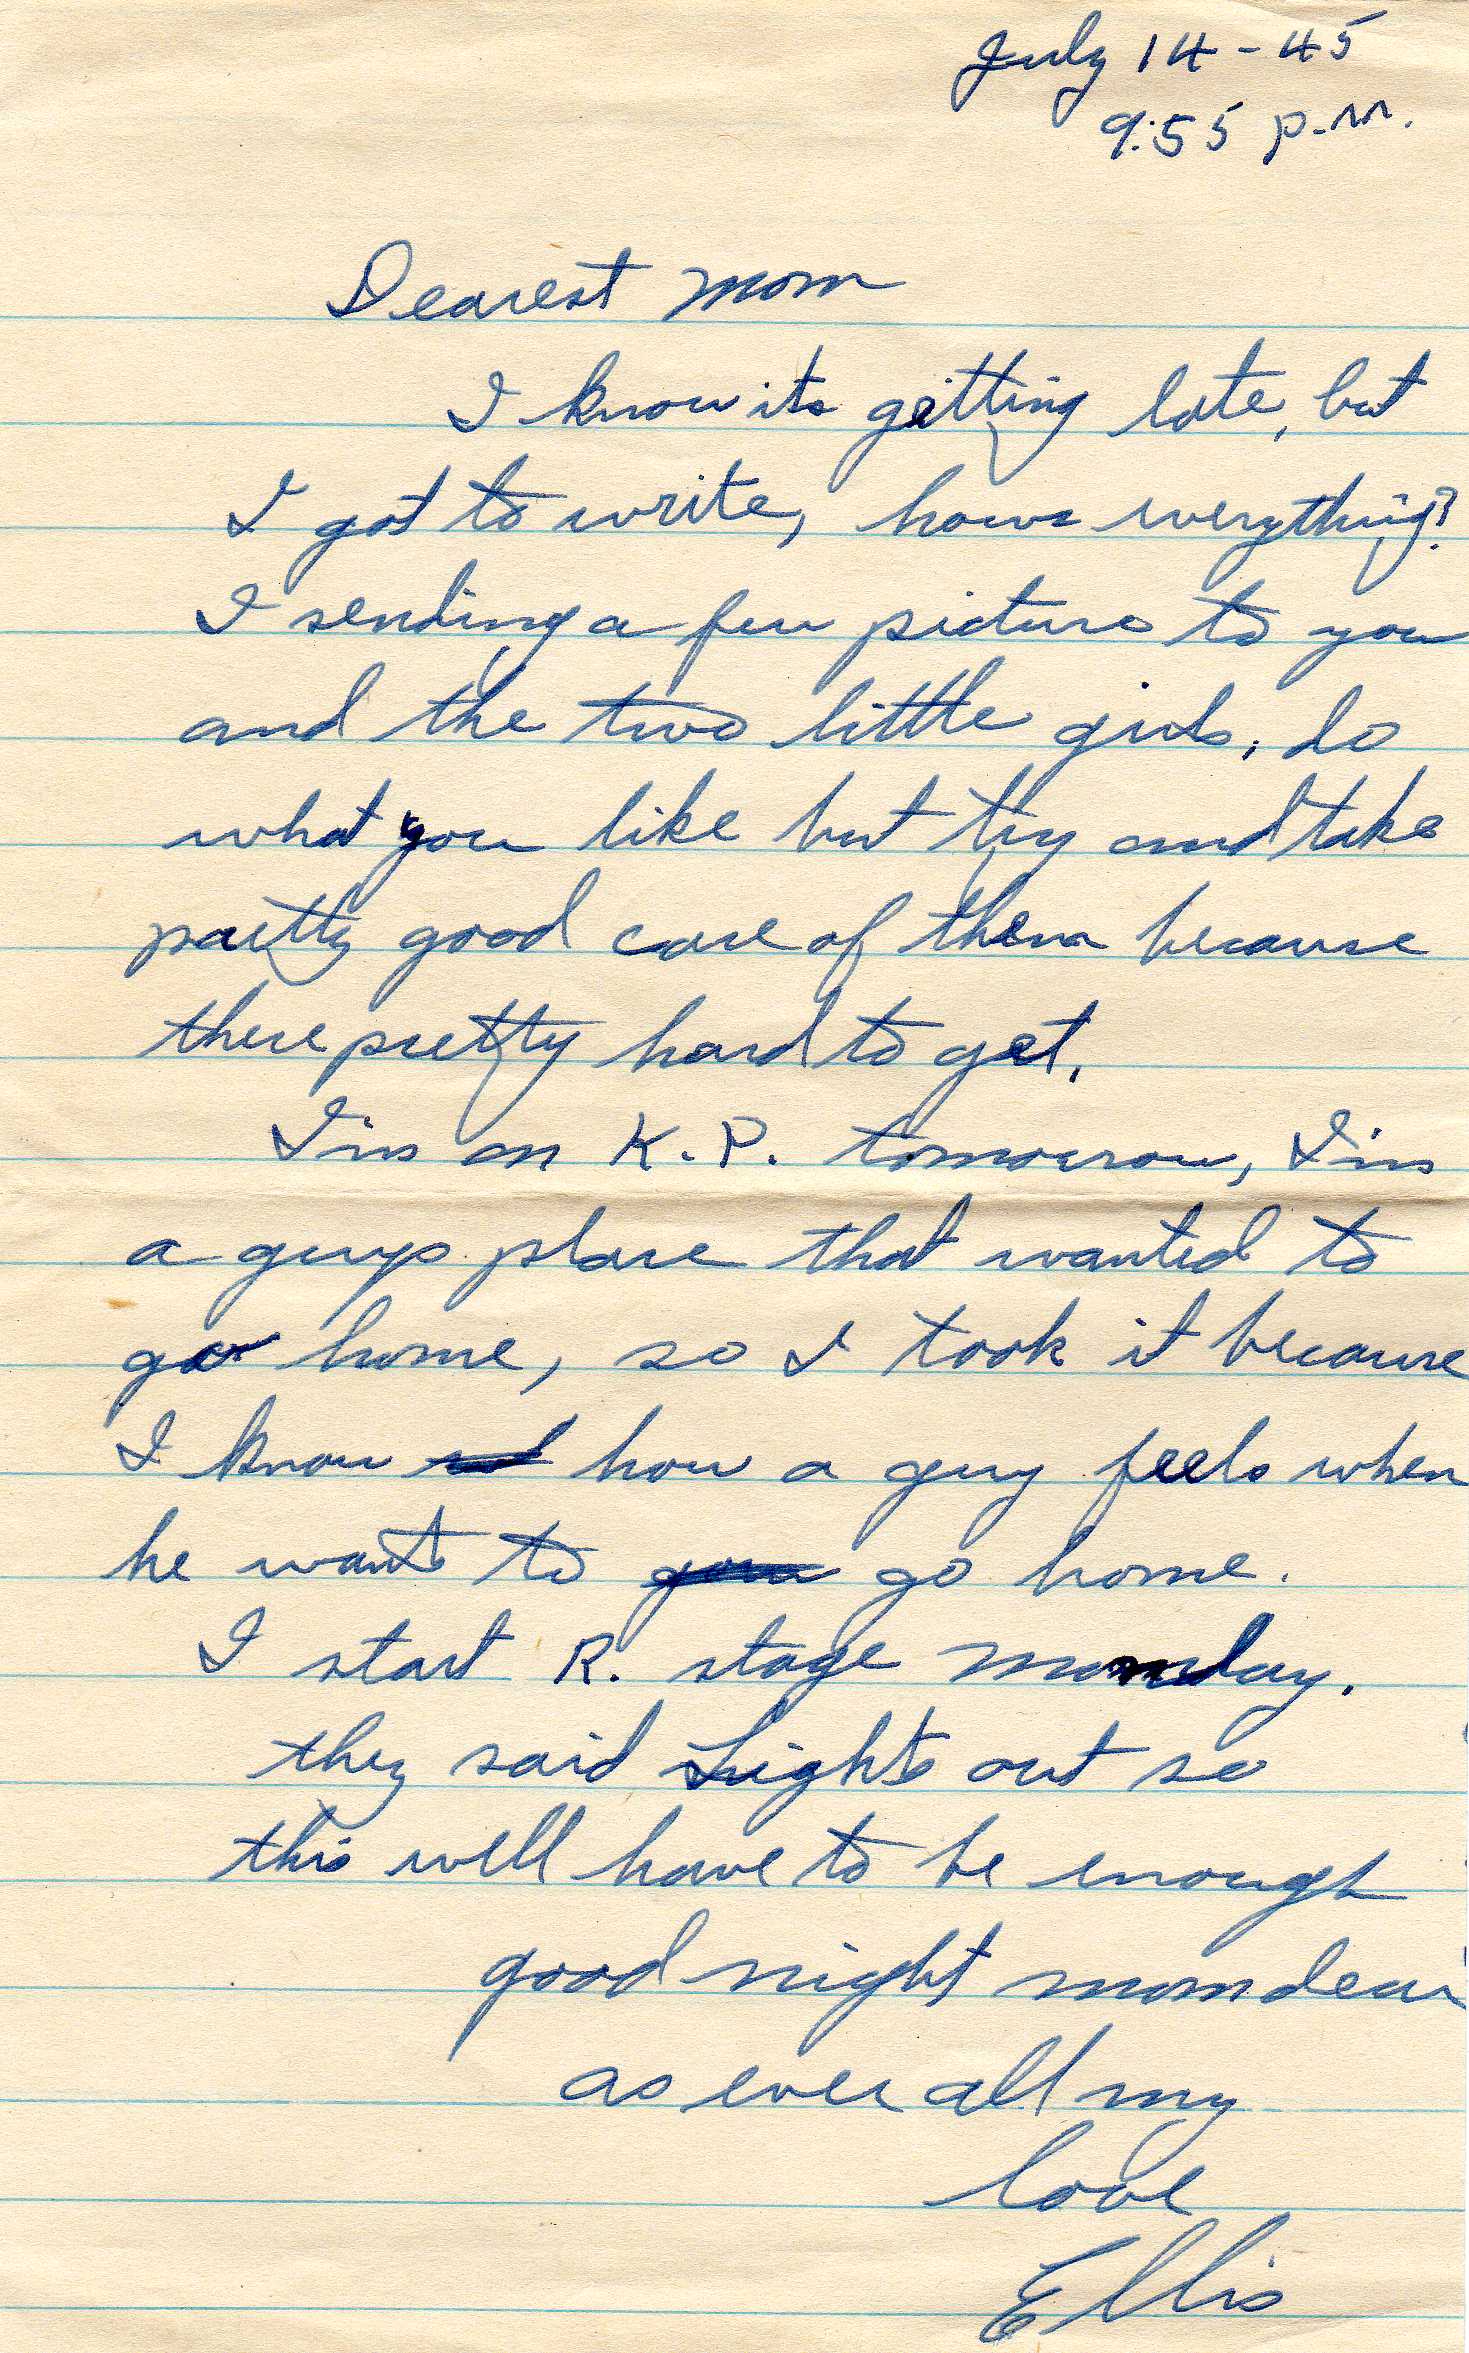 July 14-45
9:55 p.m.
Dearest mom
I know its getting late, but
I got to write, hows everything?
I sending a few pictures to you
and the two little girls, do
what you like but try and take
pretty good care of them because
there pretty hard to get.
I'm on K.P. tomorrow, I'm
a guys place that wanted to
go home, so I took it because
I know how a guy feels when
he wants to go home.
I start R. stage monday.
they said Lights out so
this well have to be enough
good night mom dear
as ever all my
love
Ellis